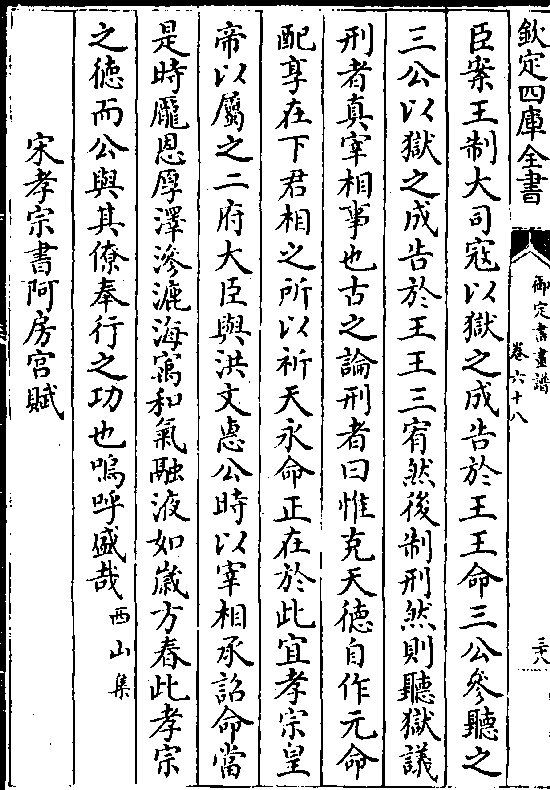 欽定四庫全書
御定書畫譜
卷六十八
三十八
臣案王制大司寇以獄之成告於王王命三公參聽之
三公以獄之成告於王王三宥然後制刑然則聽獄議
刑者真宰相事也古之論刑者曰惟克天德自作元命
配享在下君相之所以祈天永命正在於此宜孝宗皇
帝以屬之二府大臣與洪文惠公時以宰相承詔命當
是時龎恩厚澤滲漉海寓和氣融液如嵗方春此孝宗
之德而公與其僚奉行之功也嗚呼盛哉西山集
宋孝宗書阿房宫賦